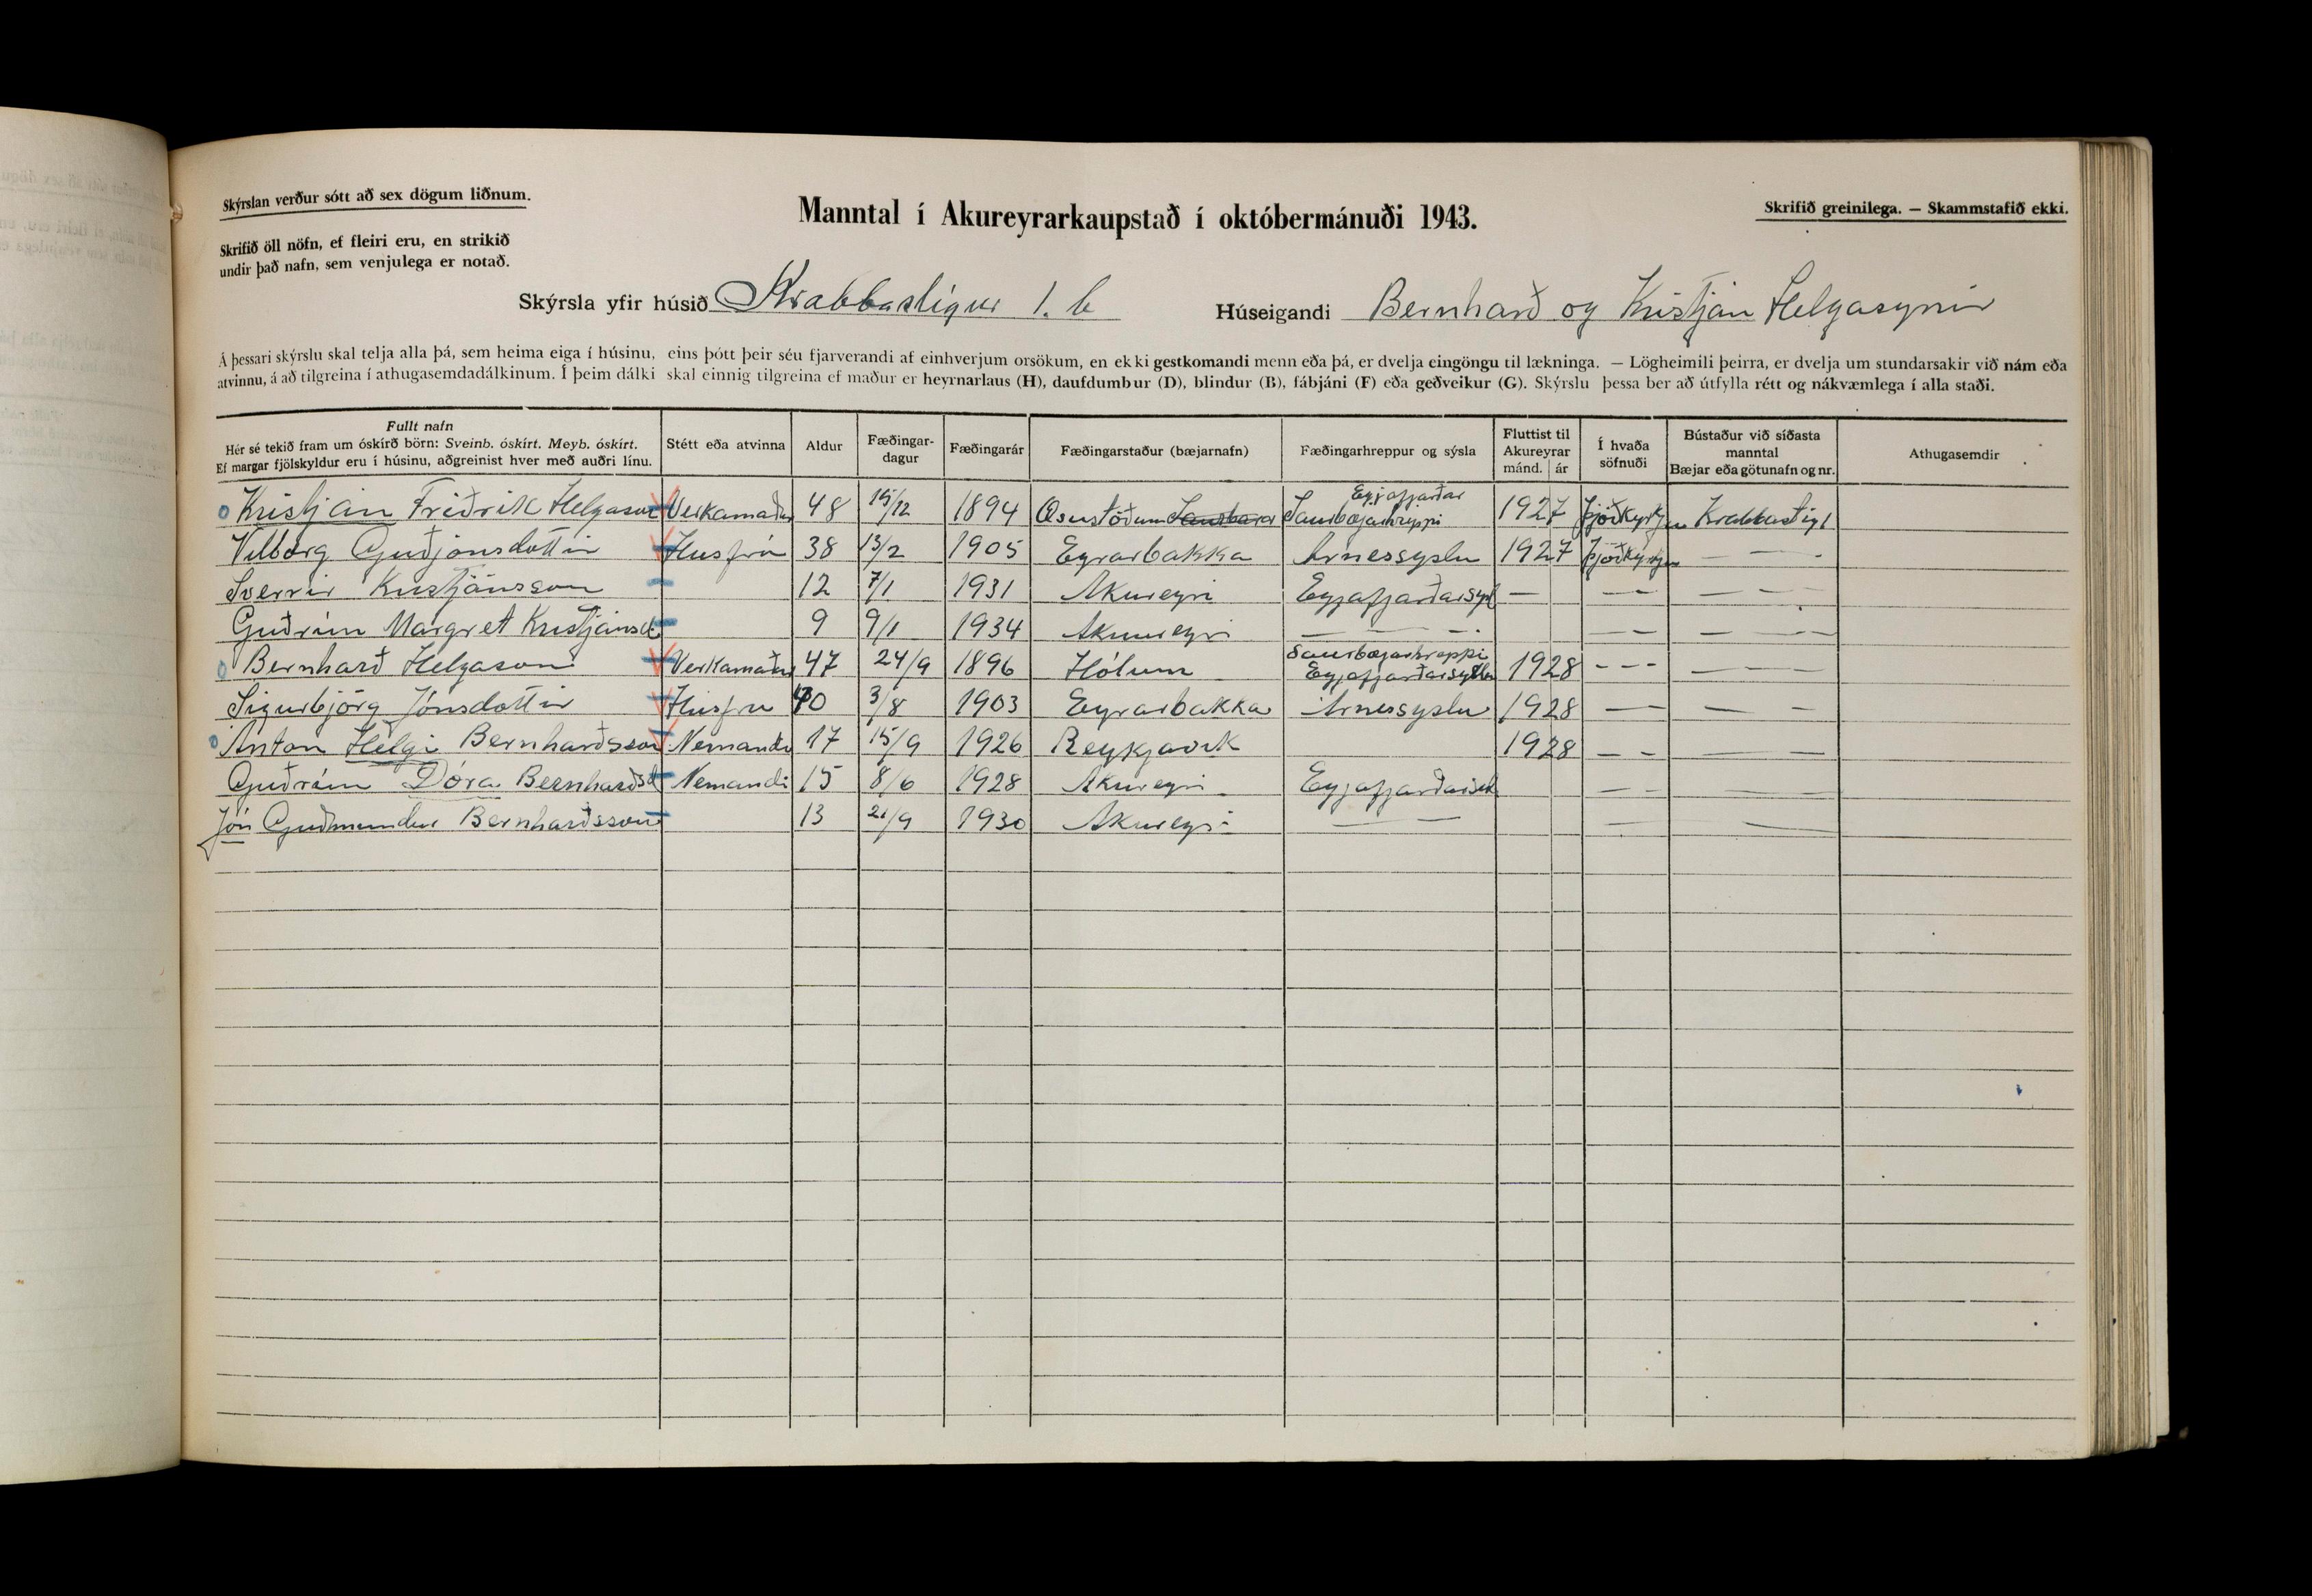 Skýrslan verður sótt að sex dögum liðnum.
Manntal í Akureyrarkaupstað í októbermánuði 1943.
Skrifið greinilega. — Skammstafið ekki.
Skrifið öll nöfn, ef fleiri eru, en strikið
undir það nafn, sem venjulega er notað.
Skýrsla yfir húsið Krabbastígur 1. b Húseigandi Bernharð og Kristján Helgasynir
Á þessari skýrslu skal telja alla þá, sem heima eiga í húsinu, eins þótt þeir séu fjarverandi af einhverjum orsökum, en ekki gestkomandi menn eða þá, er dvelja eingöngu til lækninga. — Lögheimili þeirra, er dvelja um stundarsakir við nám eða
atvinnu, á að tilgreina í athugasemdadálkinum. Í þeim dálki skal einnig tilgreina ef maður er heyrnarlaus (H), daufdumbur (D), blindur (B), fábjáni (F) eða geðveikur (G). Skýrslu þessa ber að útfylla rétt og nákvæmlega í alla staði.
Fullt nafn
Hér sé tekið fram um óskírð börn: Sveinb. óskírt. Meyb. óskírt.
Ef margar fjölskyldur eru í húsinu, aðgreinist hver með auðri línu.
Stétt eða atvinna
Aldur
Fæðingar-
dagur
Fæðingarár
Fæðingarstaður (bæjarnafn)
Fæðingarhreppur og sýsla
Fluttist til
Akureyrar
mánd. ár
Í hvaða
söfnuði
Bústaður við síðasta
manntal
Bæjar eða götunafn og nr.
Athugasemdir
Eyjafjarðar
Kristján Friðrik Helgason Verkamaður 48 15/12 1894 Ösustöðum Saurbæjarhreppi 1927 þjóðkyrkjan Krabbastíg 1
Vilborg Guðjónsdóttir Húsfrú 38 13/2 1905 Eyrarbakka Árnessyslu 1927 þjóðkyrkjan — — -
Sverrir Kristjánsson 12 7/1 1931 Akureyri Eyjafjarðarsysl — — — — — —
Guðrún Margret Kristjánsd 9 9/1 1934 Akureyri — — - — — — — —
Saurbæjarhreppi
Bernharð Helgason Verkamaður 47 24/9 1896 Hólum Eyjafjarðarsyslu 1928 - - - — —
Sigurbjörg Jónsdóttir Húsfrú 40 3/8 1903 Eyrarbakka Árnessyslu 1928 — — — — -
Anton Helgi Bernharðsson Nemandi 17 15/9 1926 Reykjavik 1928 — - — —
Guðrún Dóra Bernharðsd Nemandi 15 8/6 1928 Akureyri Eyjafjarðars — — — —
Jón Guðmundur Bernharðsson 13 21/9 1930 Akureyri — — — — —